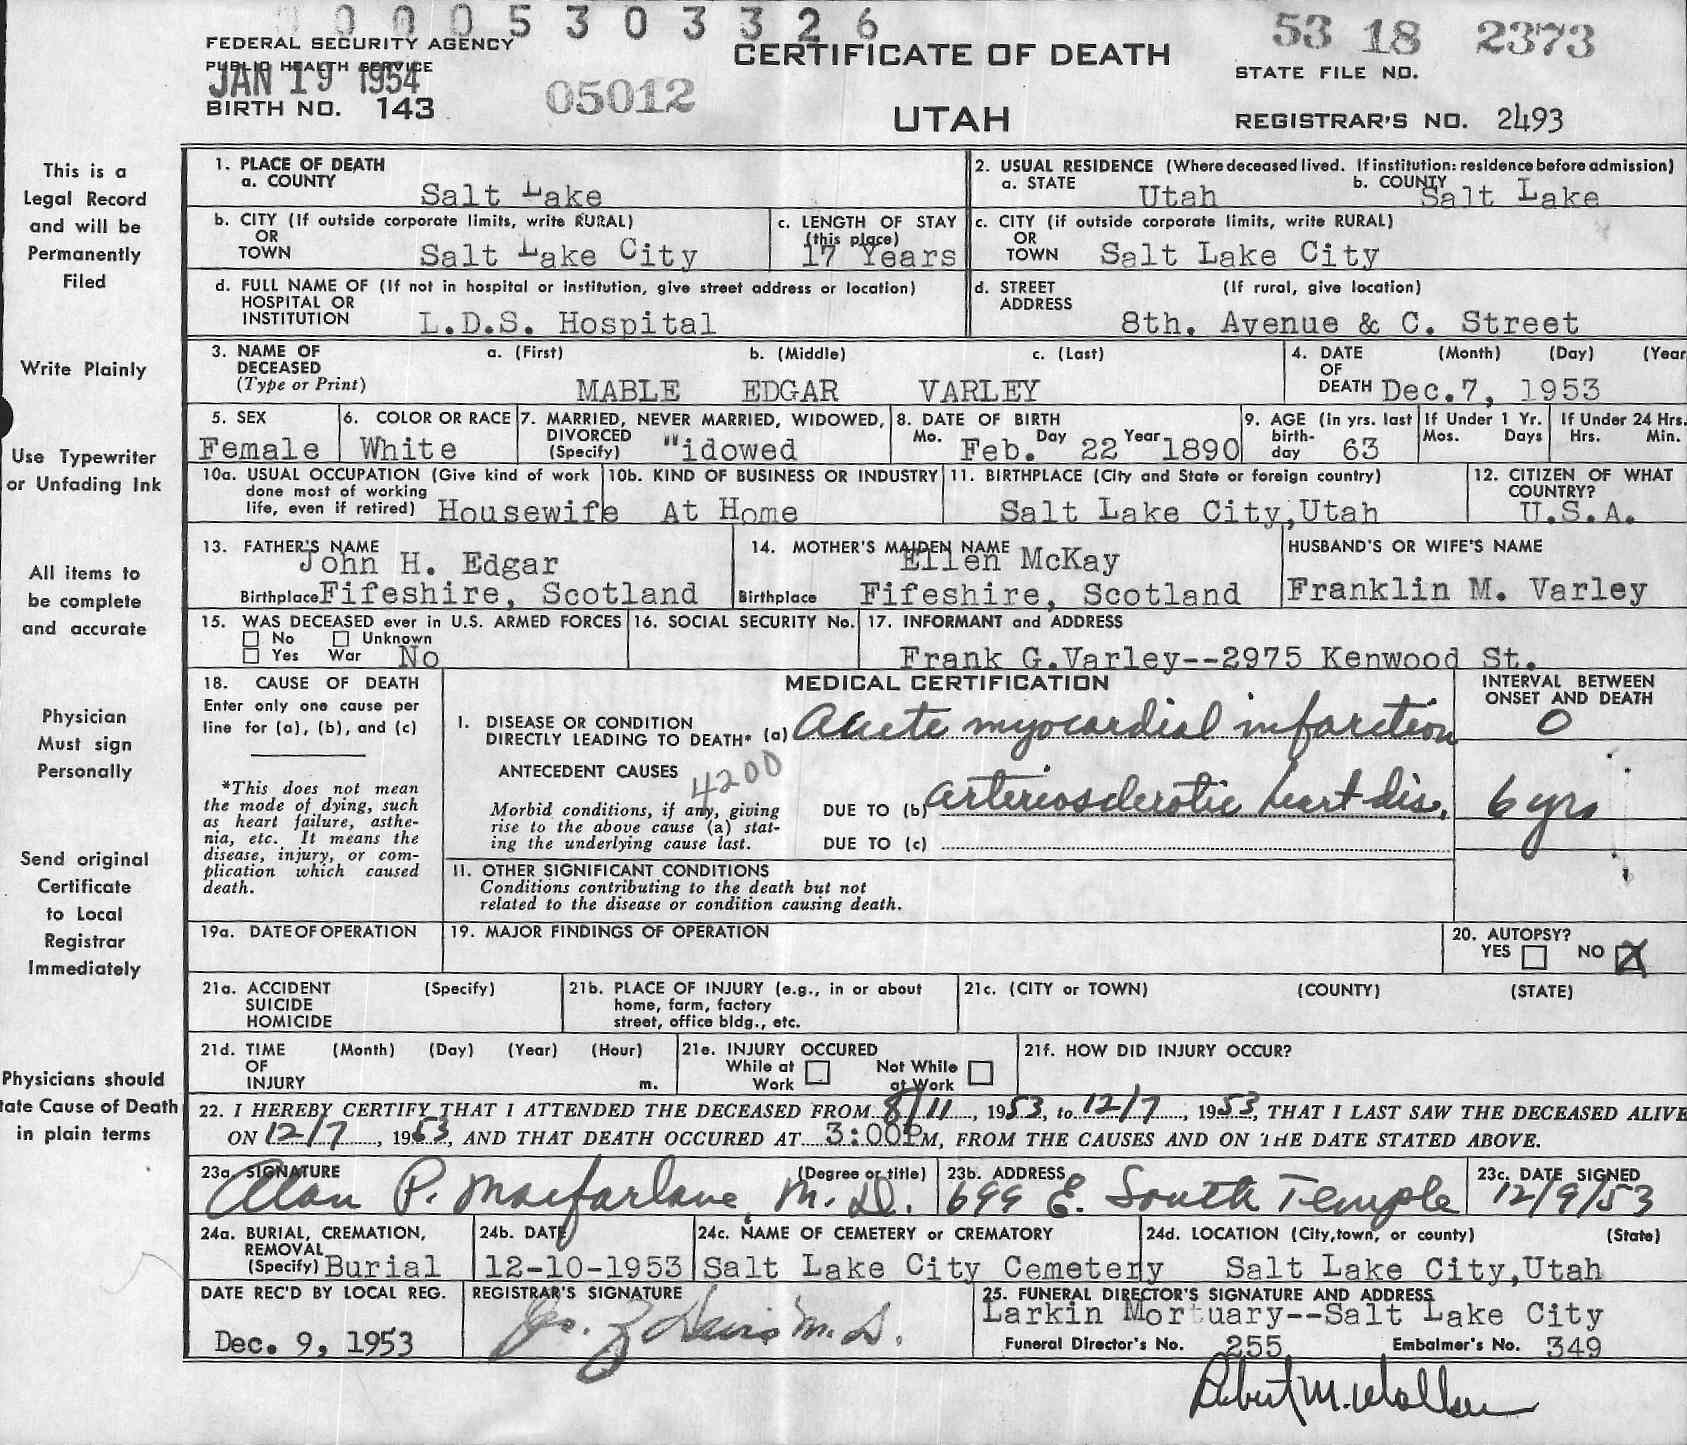 0 0 0 0 5 3 0 3 3 2 6
53 18 2373
FEDERAL SECURITY AGENCY
PUBLIC HEALTH SERVICE
JAN 19 1954
BIRTH NO. 143
05012
CERTIFICATE OF DEATH
UTAH
STATE FILE NO.
REGISTRAR'S NO. 2493
This is a
Legal Record
and will be
Permanently
Filed
Write Plainly
Use Typewriter
or Unfading Ink
All items to
be complete
and accurate
Physician
Must sign
Personally
Send original
Certificate
to Local
Registrar
Immediately
Physicians should
tate Cause of Death
in plain terms
1. PLACE OF DEATH
a. COUNTY
Salt Lake
2. USUAL RESIDENCE (Where deceased lived. If institution: residence before admission)
a. STATE Utah b. COUNTY Salt Lake
b. CITY (If outside corporate limits, write RURAL)
OR
TOWN Salt Lake City
c. LENGTH OF STAY
(this place)
17 Years
c. CITY (if outside corporate limits, write RURAL)
OR
TOWN Salt Lake City
d. FULL NAME OF (If not in hospital or institution, give street address or location)
HOSPITAL OR
INSTITUTION L.D.S. Hospital
d. STREET (If rural, give location)
ADDRESS
8th. Avenue & C. Street
3. NAME OF a. (First) b. (Middle) c. (Last)
DECEASED
(Type or Print) MABLE EDGAR VARLEY
4. DATE (Month) (Day) (Year
OF
DEATH Dec.7, 1953
5. SEX
Female
6. COLOR OR RACE
White
7. MARRIED, NEVER MARRIED, WIDOWED,
DIVORCED
(Specify) "idowed
8. DATE OF BIRTH
Mo. Day Year
Feb. 22 1890
9. AGE (in yrs. last
birth-
day 63
If Under 1 Yr.
Mos. Days
If Under 24 Hrs.
Hrs. Min.
10a. USUAL OCCUPATION (Give kind of work
done most of working
life, even if retired) Housewife
10b. KIND OF BUSINESS OR INDUSTRY
At Home
11. BIRTHPLACE (City and State or foreign country)
Salt Lake City,Utah
12. CITIZEN OF WHAT
COUNTRY?
U.S.A.
13. FATHER'S NAME
John H. Edgar
Birthplace Fifeshire, Scotland
14. MOTHER'S MAIDEN NAME
Ellen McKay
Birthplace Fifeshire, Scotland
HUSBAND'S OR WIFE'S NAME
Franklin M. Varley
15. WAS DECEASED ever in U.S. ARMED FORCES
No Unknown
Yes War No
16. SOCIAL SECURITY No.
17. INFORMANT and ADDRESS
Frank G.Varley--2975 Kenwood St.
18. CAUSE OF DEATH
Enter only one cause per
line for (a), (b), and (c)
*This does not mean
the mode of dying, such
as heart failure, asthe-
nia, etc. It means the
disease, injury, or com-
plication which caused
death.
MEDICAL CERTIFICATION
INTERVAL BETWEEN
ONSET AND DEATH
I. DISEASE OR CONDITION
DIRECTLY LEADING TO DEATH* (a) Acute myocardial infarction
0
ANTECEDENT CAUSES
4200
Morbid conditions, if any, giving
rise to the above cause (a) stat-
ing the underlying cause last.
DUE TO (b) arteriosclerotic heart dis.
6 yrs
DUE TO (c)
11. OTHER SIGNIFICANT CONDITIONS
Conditions contributing to the death but not
related to the disease or condition causing death.
19a. DATE OF OPERATION
19. MAJOR FINDINGS OF OPERATION
20. AUTOPSY?
YES NO X
21a. ACCIDENT (Specify)
SUICIDE
HOMICIDE
21b. PLACE OF INJURY (e.g., in or about
home, farm, factory
street, office bldg., etc.
21c. (CITY or TOWN) (COUNTY) (STATE)
21d. TIME (Month) (Day) (Year) (Hour)
OF
INJURY m.
21e. INJURY OCCURED
While at Not While
Work at Work
21f. HOW DID INJURY OCCUR?
22. I HEREBY CERTIFY THAT I ATTENDED THE DECEASED FROM 8/11, 1953, to 12/7, 1953, THAT I LAST SAW THE DECEASED ALIVE
ON 12/7, 1953, AND THAT DEATH OCCURED AT 3:00PM, FROM THE CAUSES AND ON THE DATE STATED ABOVE.
23a. SIGNATURE (Degree or title)
Alan P. Macfarlane, M.D.
23b. ADDRESS
699 E. South Temple
23c. DATE SIGNED
12/9/53
24a. BURIAL, CREMATION,
REMOVAL
(Specify) Burial
24b. DATE
12-10-1953
24c. NAME OF CEMETERY or CREMATORY
Salt Lake City Cemetery
24d. LOCATION (City,town, or county) (State)
Salt Lake City,Utah
DATE REC'D BY LOCAL REG.
Dec. 9, 1953
REGISTRAR'S SIGNATURE
M.D.
25. FUNERAL DIRECTOR'S SIGNATURE AND ADDRESS
Larkin Mortuary--Salt Lake City
Funeral Director's No. 255 Embalmer's No. 349
Robert M.